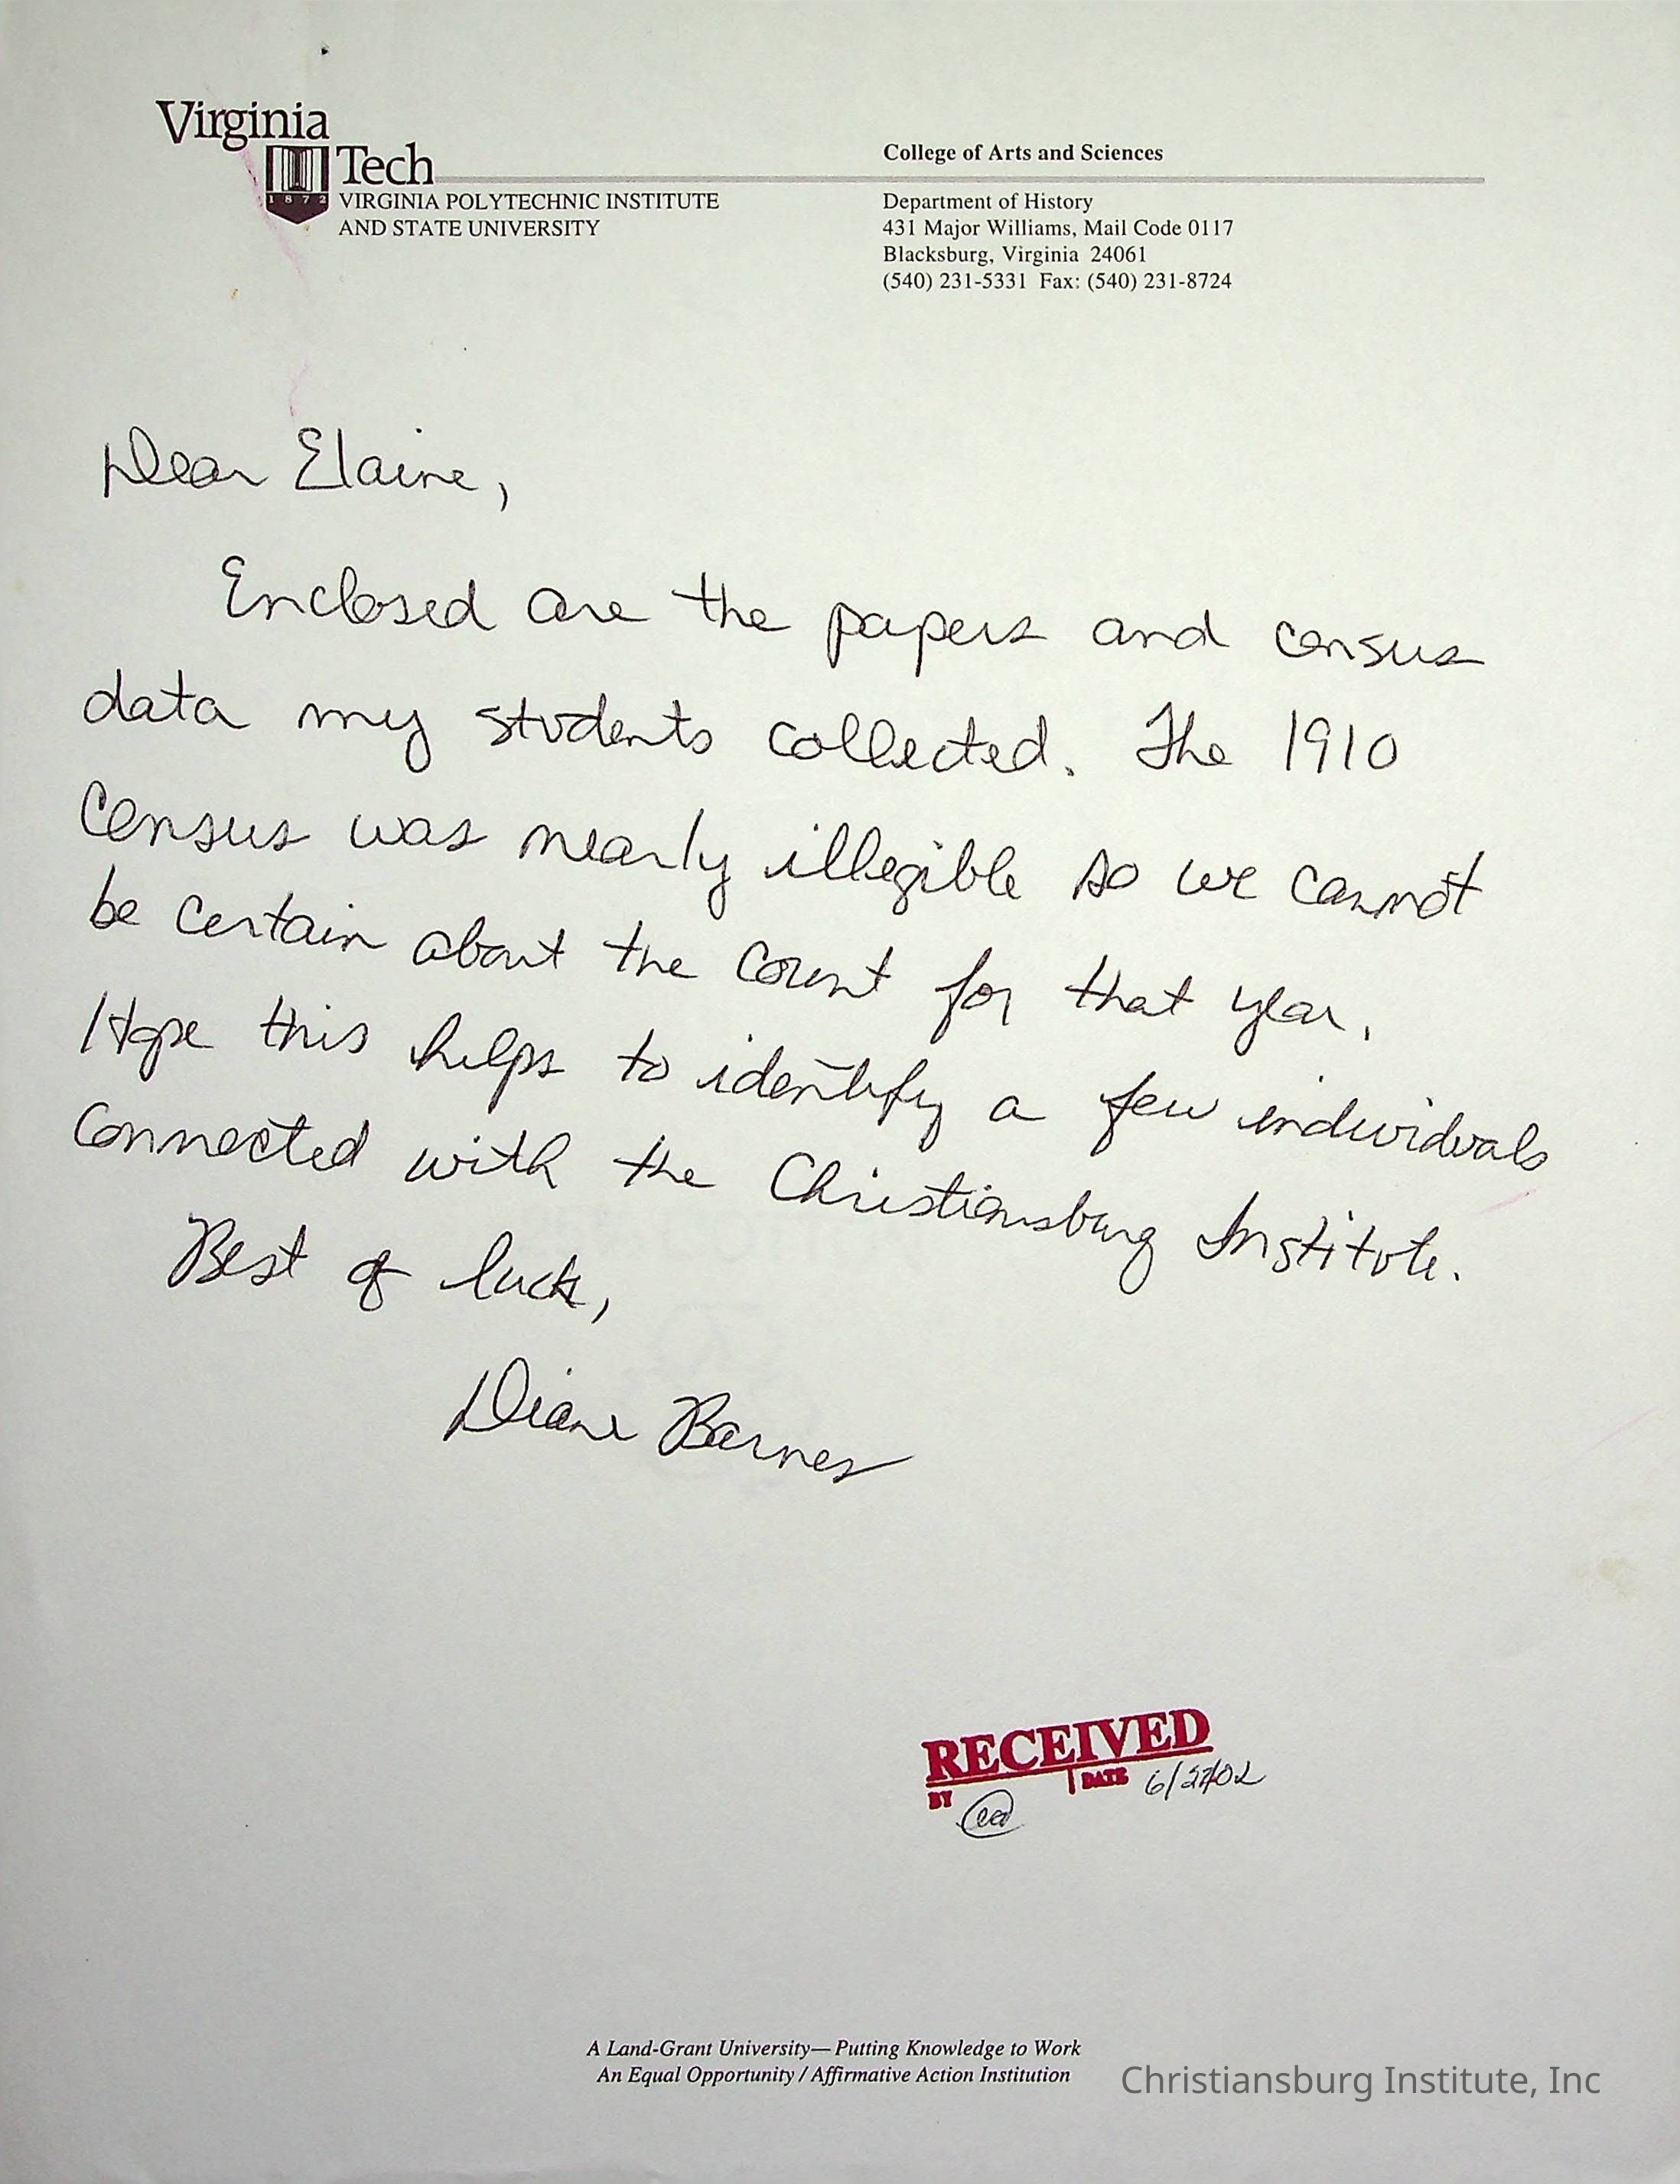 Virginia
Tech
1872
VIRGINIA POLYTECHNIC INSTITUTE
AND STATE UNIVERSITY
College of Arts and Sciences
Department of History
431 Major Williams, Mail Code 0117
Blacksburg, Virginia 24061
(540) 231-5331 Fax: (540) 231-8724
Dear Elaine,
Enclosed are the papers and census
data my students collected. The 1910
Census was nearly illegible so we cannot
be certain about the count for that year.
Hope this helps to identify a few individuals
connected with the Christiansburg Institute.
Best of luck,
Diane Barnes
RECEIVED
BY DATE
A Land-Grant University—Putting Knowledge to Work
An Equal Opportunity / Affirmative Action Institution
Christiansburg Institute, Inc